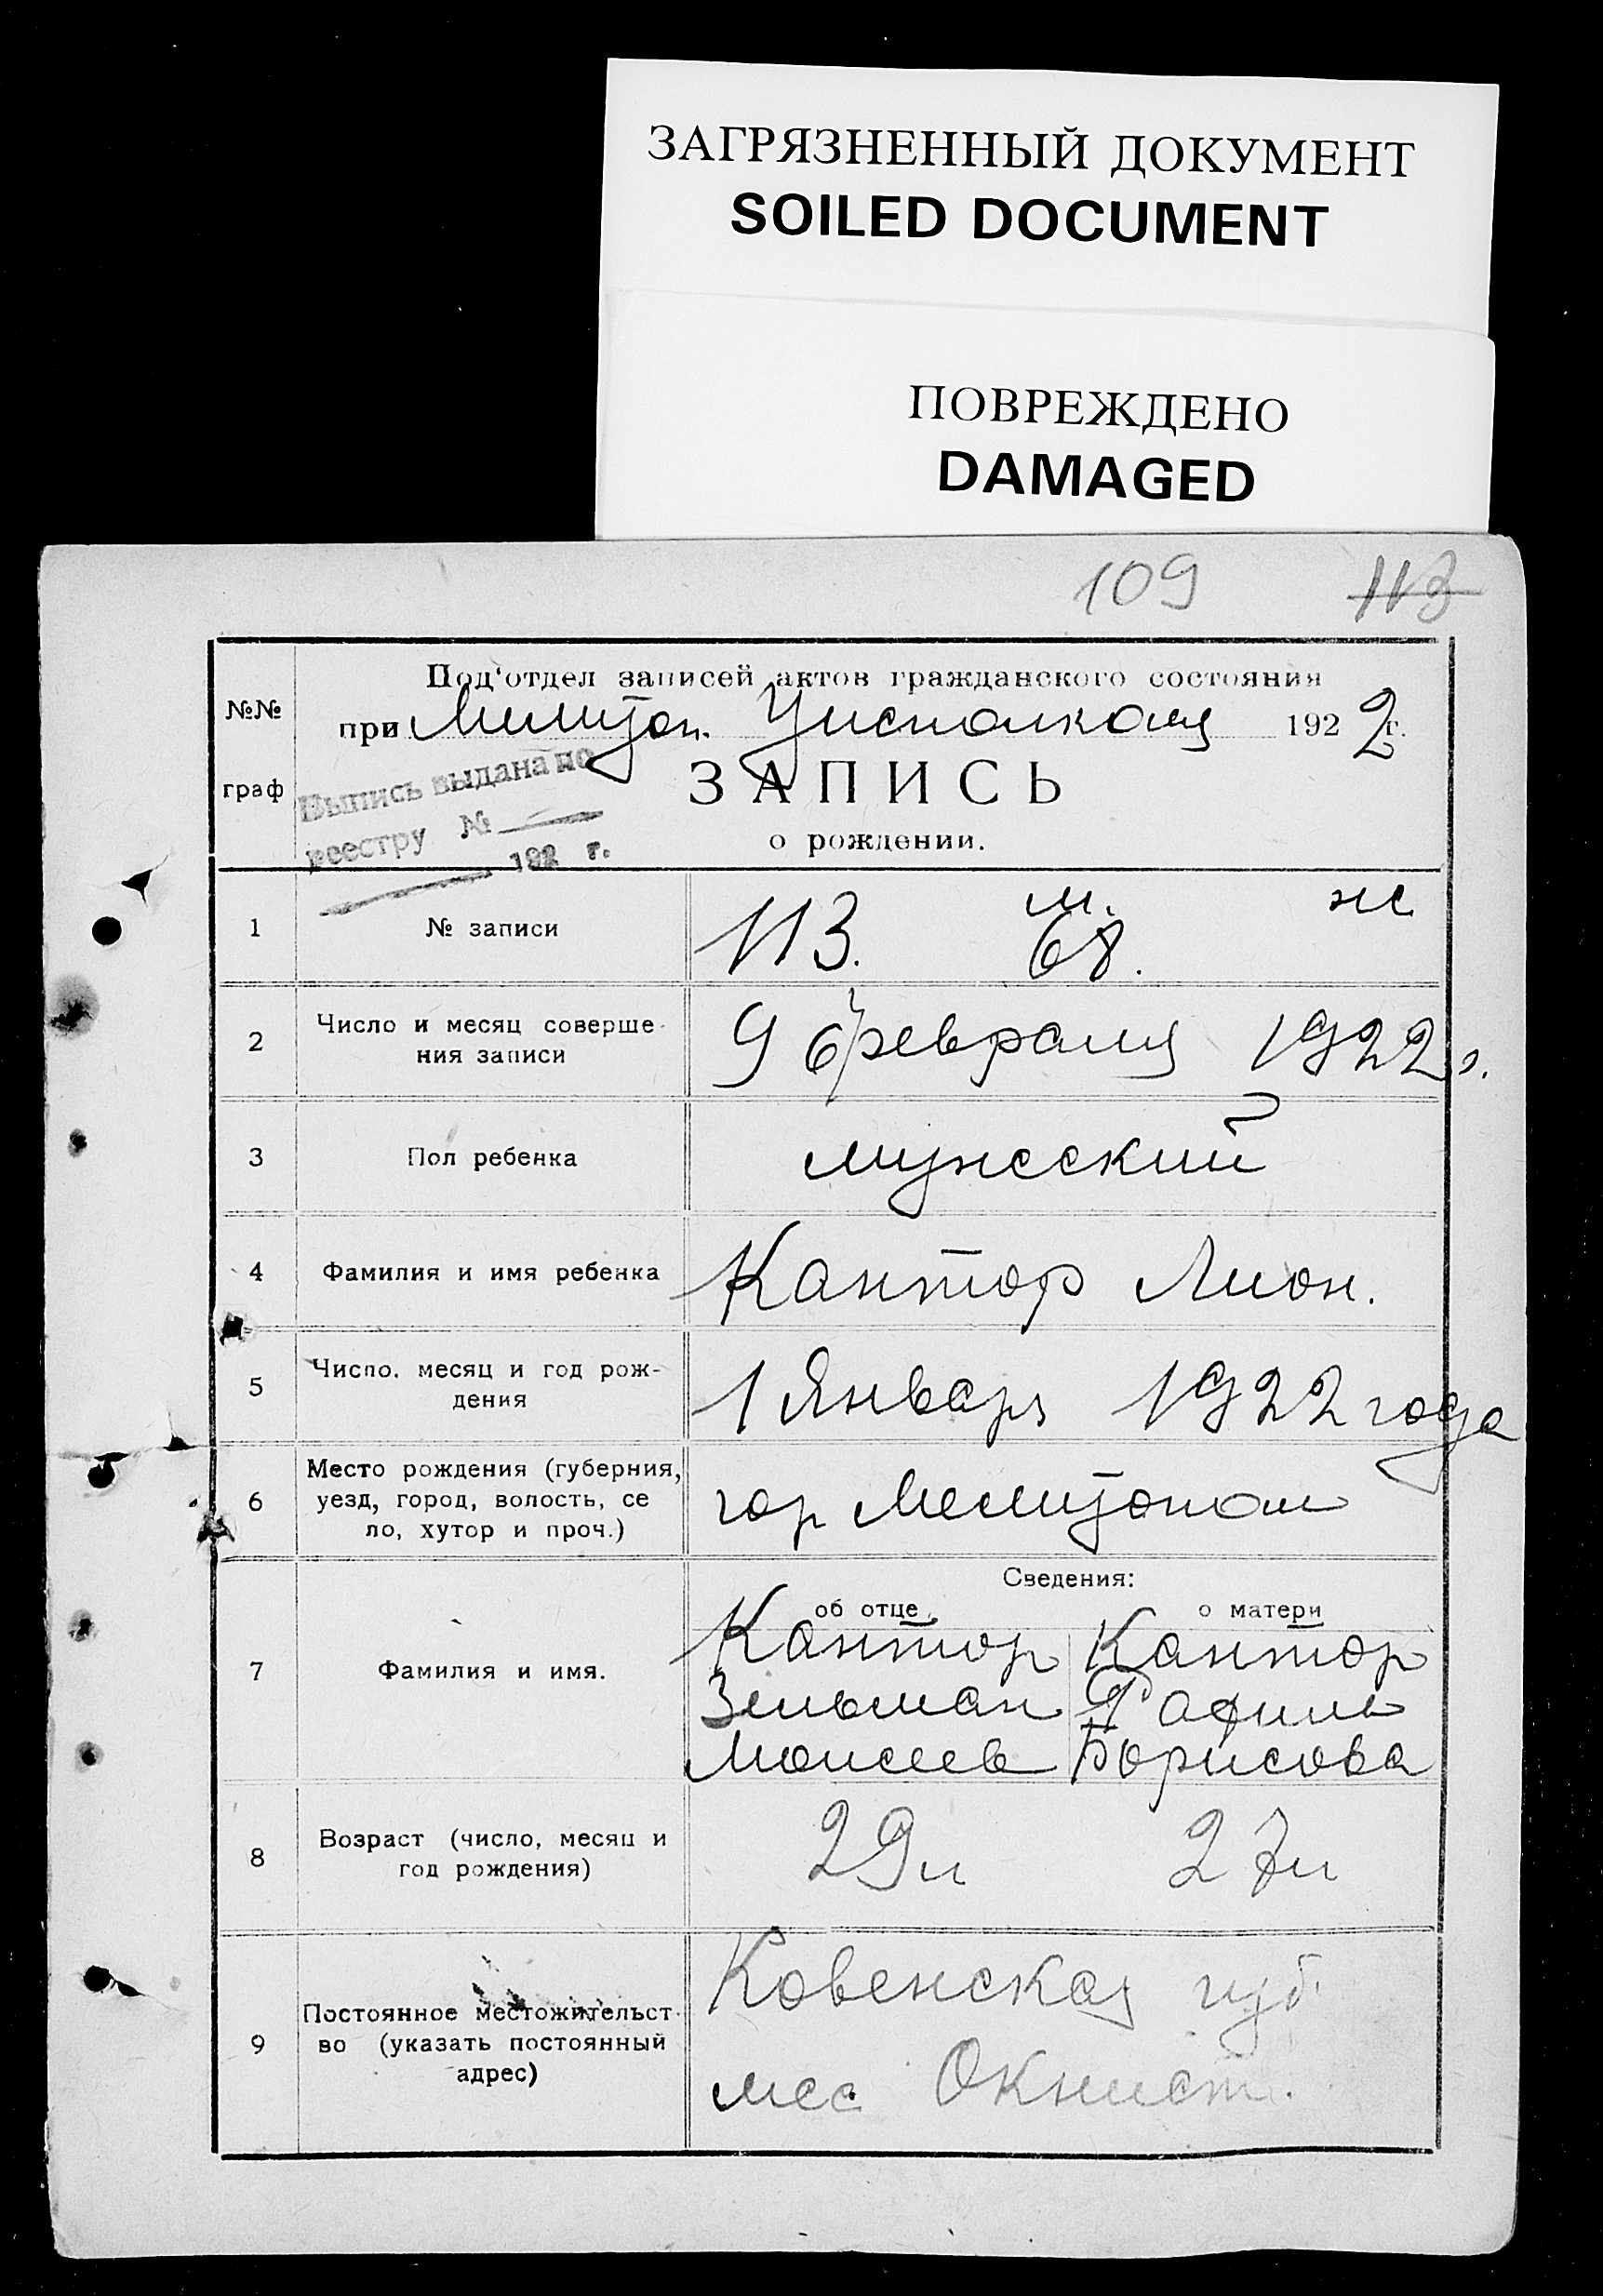 ЗАГРЯЗНЕННЫЙ ДОКУМЕНТ
SOILED DOCUMENT
ПОВРЕЖДЕНО
DAMAGED
109 113
Под'отдел записей актов гражданского состояния
№№ при Мелитоп. Уисполкома 1922г.
Выпись выдана по
граф ЗАПИСЬ
реестру №
о рождении.
192 г.
м. ж
1 № записи 113. 68.
2 Число и месяц соверше-
ния записи
9 февраля 1922 г.
3 Пол ребенка мужеский
4 Фамилия и имя ребенка Кантор Лион.
5 Число, месяц и год рож-
дения
1 Январь 1922 года
6 Место рождения (губерния,
уезд, город, волость, се
ло, хутор и проч.)
гор Мелитополь
Сведения:
об отце о матери
7 Фамилия и имя.
Кантор Кантор
Зельман Рафиль
Моисеев Борисова
8 Возраст (число, месяц и
год рождения)
29 л 27 л
9 Постоянное местожительст-
во (указать постоянный
адрес)
Ковенская губ.
мес.